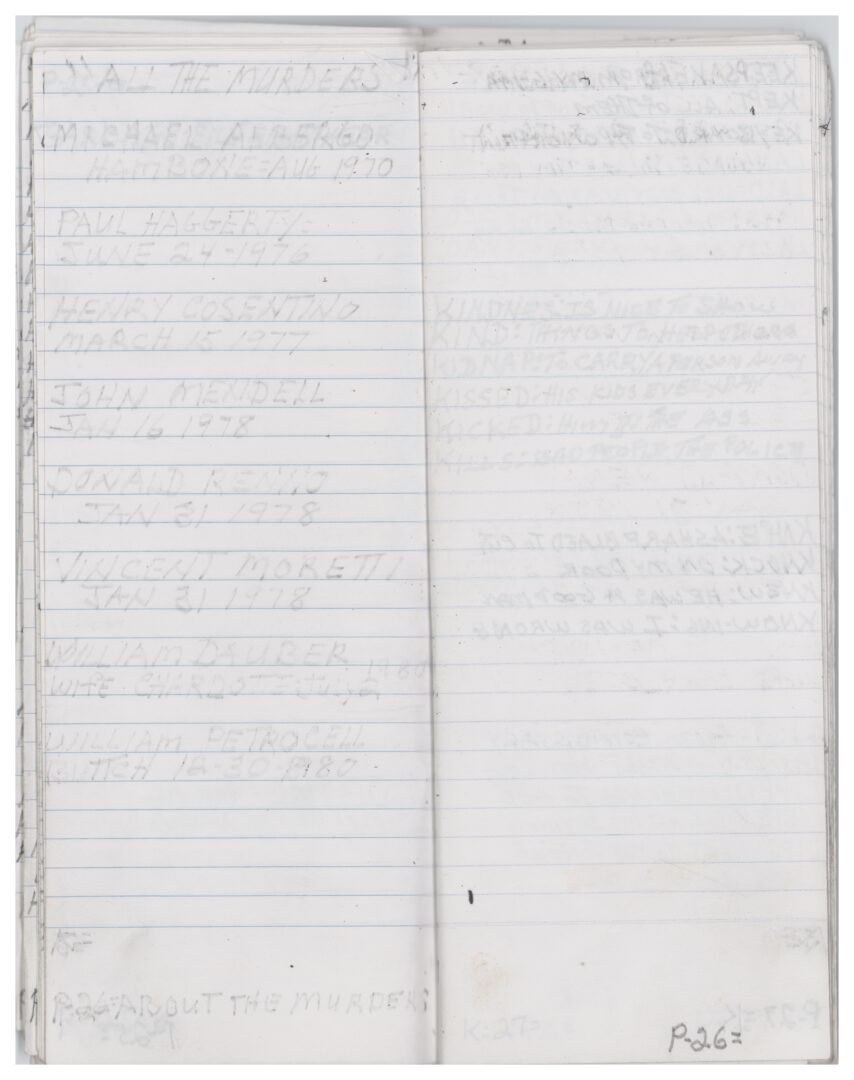 "ALL THE MURDERS"
MICHAEL ALBERGO
HAMBONE=AUG 1970
PAUL HAGGERTY=
JUNE 24-1976
HENRY COSENTINO
MARCH 15 1977
JOHN MENDELL
JAN 16 1978
DONALD RENNO
JAN 31 1978
VINCENT MORETTI
JAN 31 1978
WILLIAM DAUBER
WIFE CHARLOTTE=JULY 2 1980
WILLIAM PETROCELL
BUTCH 12-30-1980
P-26=ABOUT THE MURDERS
KINDNES:IS NICE TO SHOW
KIND:THINGS TO HELP OTHERS
KIDNAP:TO CARRY A PERSON AWAY
KISSED:HIS KIDS EVERYDAY
KICKED:HIM IN THE ASS
KILLS:BAD PEOPLE THE POLICE
K-27=
P-26=